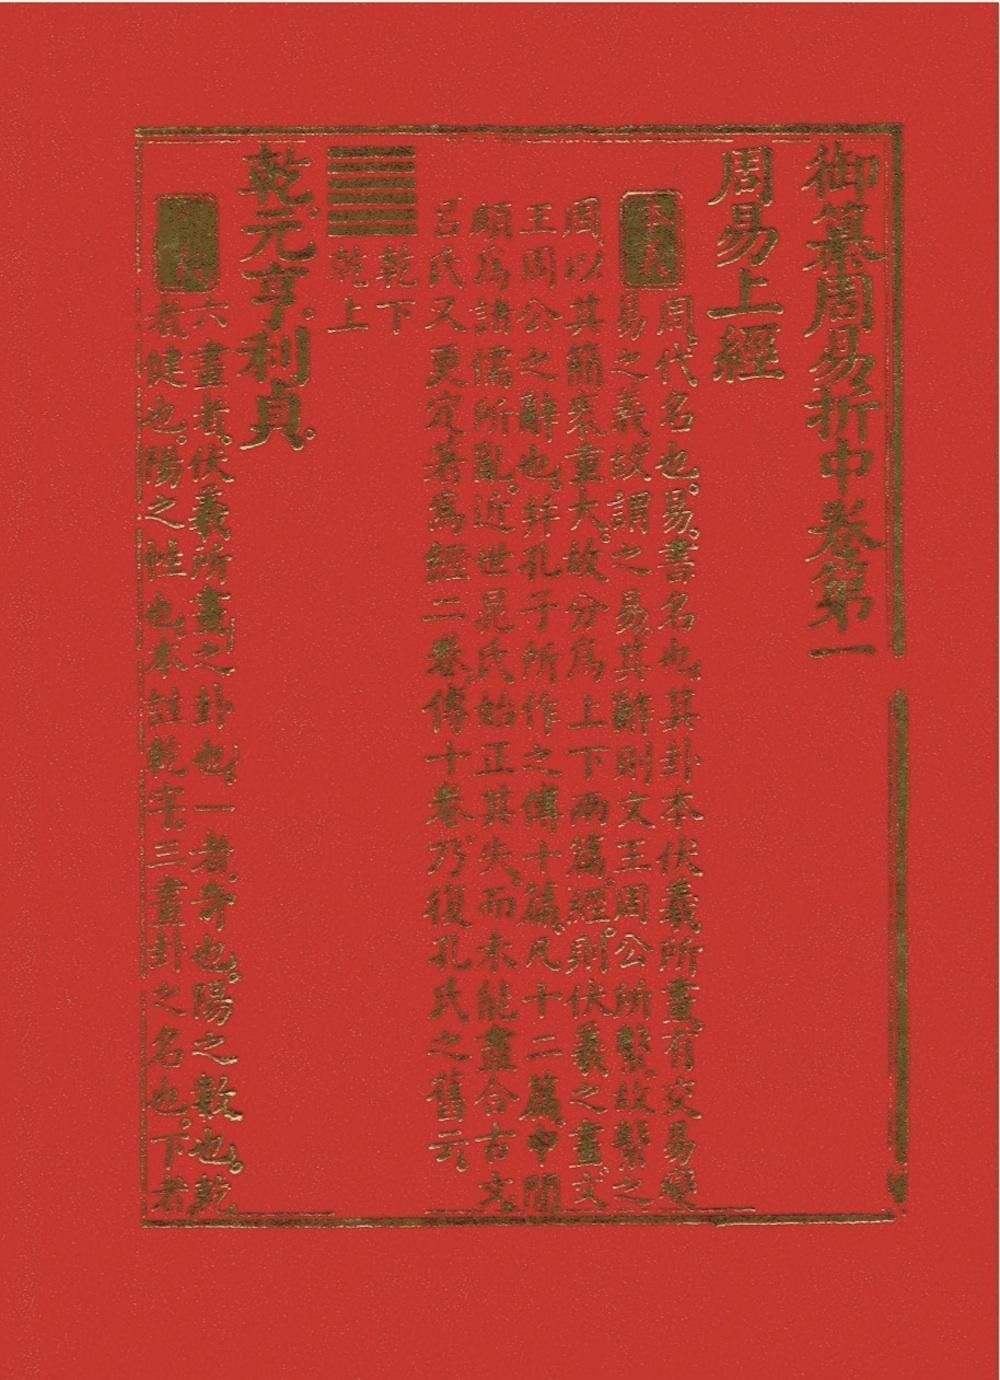 御纂周易折中卷第一
周易上經
周代名也。易書名也。其卦本伏羲所畫。有交易變
易之義。故謂之易。其辭則文王周公所繫。故繫之
周。以其簡袠重大。故分爲上下兩篇。經則伏羲之畫。文
王周公之辭也。幷孔子所作之傳十篇。凡十二篇。中閒
頗爲諸儒所亂。近世晁氏始正其失。而未能盡合古文。
呂氏又更定著爲經二卷。傳十卷。乃復孔氏之舊云。
乾下
乾上
乾。元亨。利貞。
六畫者。伏羲所畫之卦也。一者。奇也。陽之數也。乾
者。健也。陽之性也。本註乾字。三畫卦之名也。下者